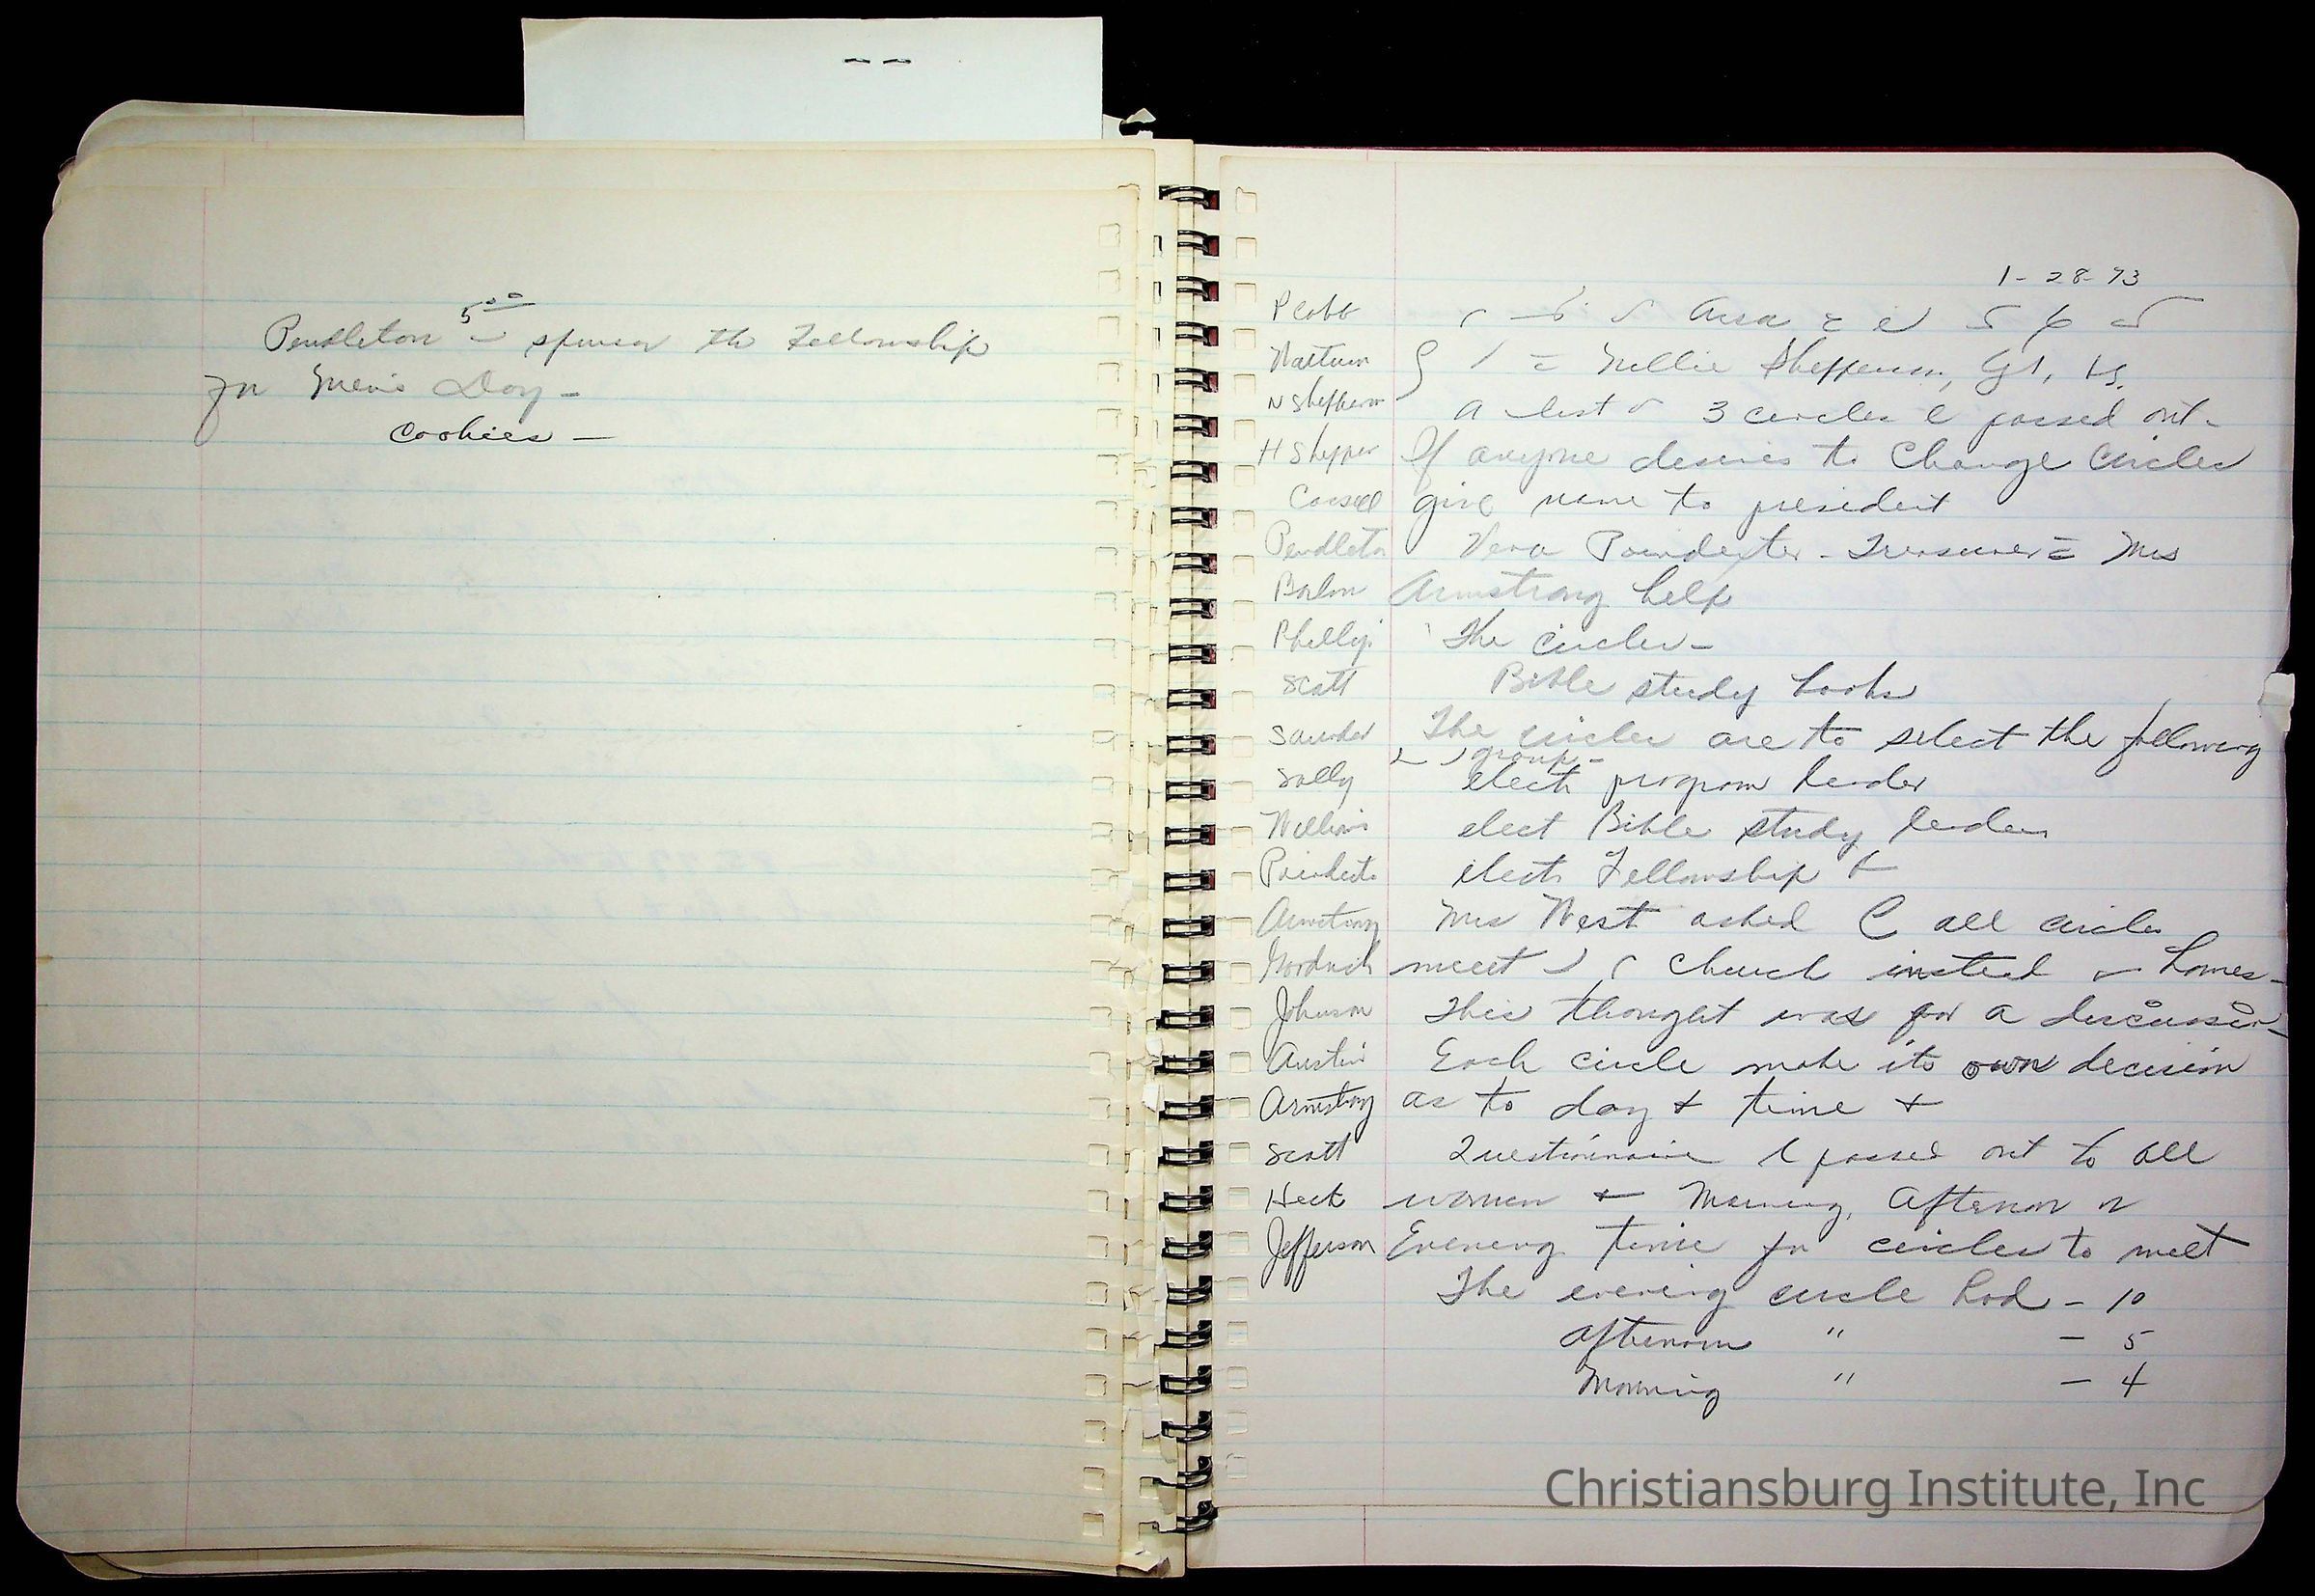 5 00
Pendleton - sponsor the Fellowship
for Men's Day -
Cookies -
1-28-73
P Cobb
Area
N Shepperson
Nellie Shepperson,
a list 3 circles passed out -
H Shepper
If anyone desires to Change Circles
give name to president
Pendleton
Vera Poindexter - Treasurer = Mrs
Armstrong help
Phillip
The circles -
Scott
Bible study books
Saunder
The circles are to select the following
group -
Sally
elect program leader
Williams
elect Bible study leader
Poindexte
elect Fellowship
Armstrong
Mrs West asked all circles
meet Church instead homes -
Johnson
This thought was for a discussion
Austin
Each circle make its own decision
Armstrong
as to day + time +
Scott
Questionnaire passed out to all
Heck
women Morning, Afternoon or
Jefferson
Evening time for circles to meet
The evening circle had - 10
Afternoon " - 5
Morning " - 4
Christiansburg Institute, Inc